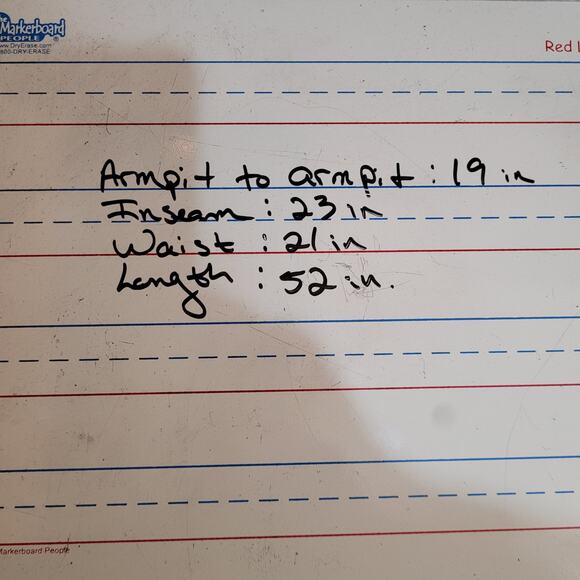 Markerboard
PEOPLE
www.DryErase.com
800-DRY-ERASE
Red
Armpit to armpit : 19 in
Inseam : 23 in
Waist : 21 in
Length : 52 in.
Markerboard People